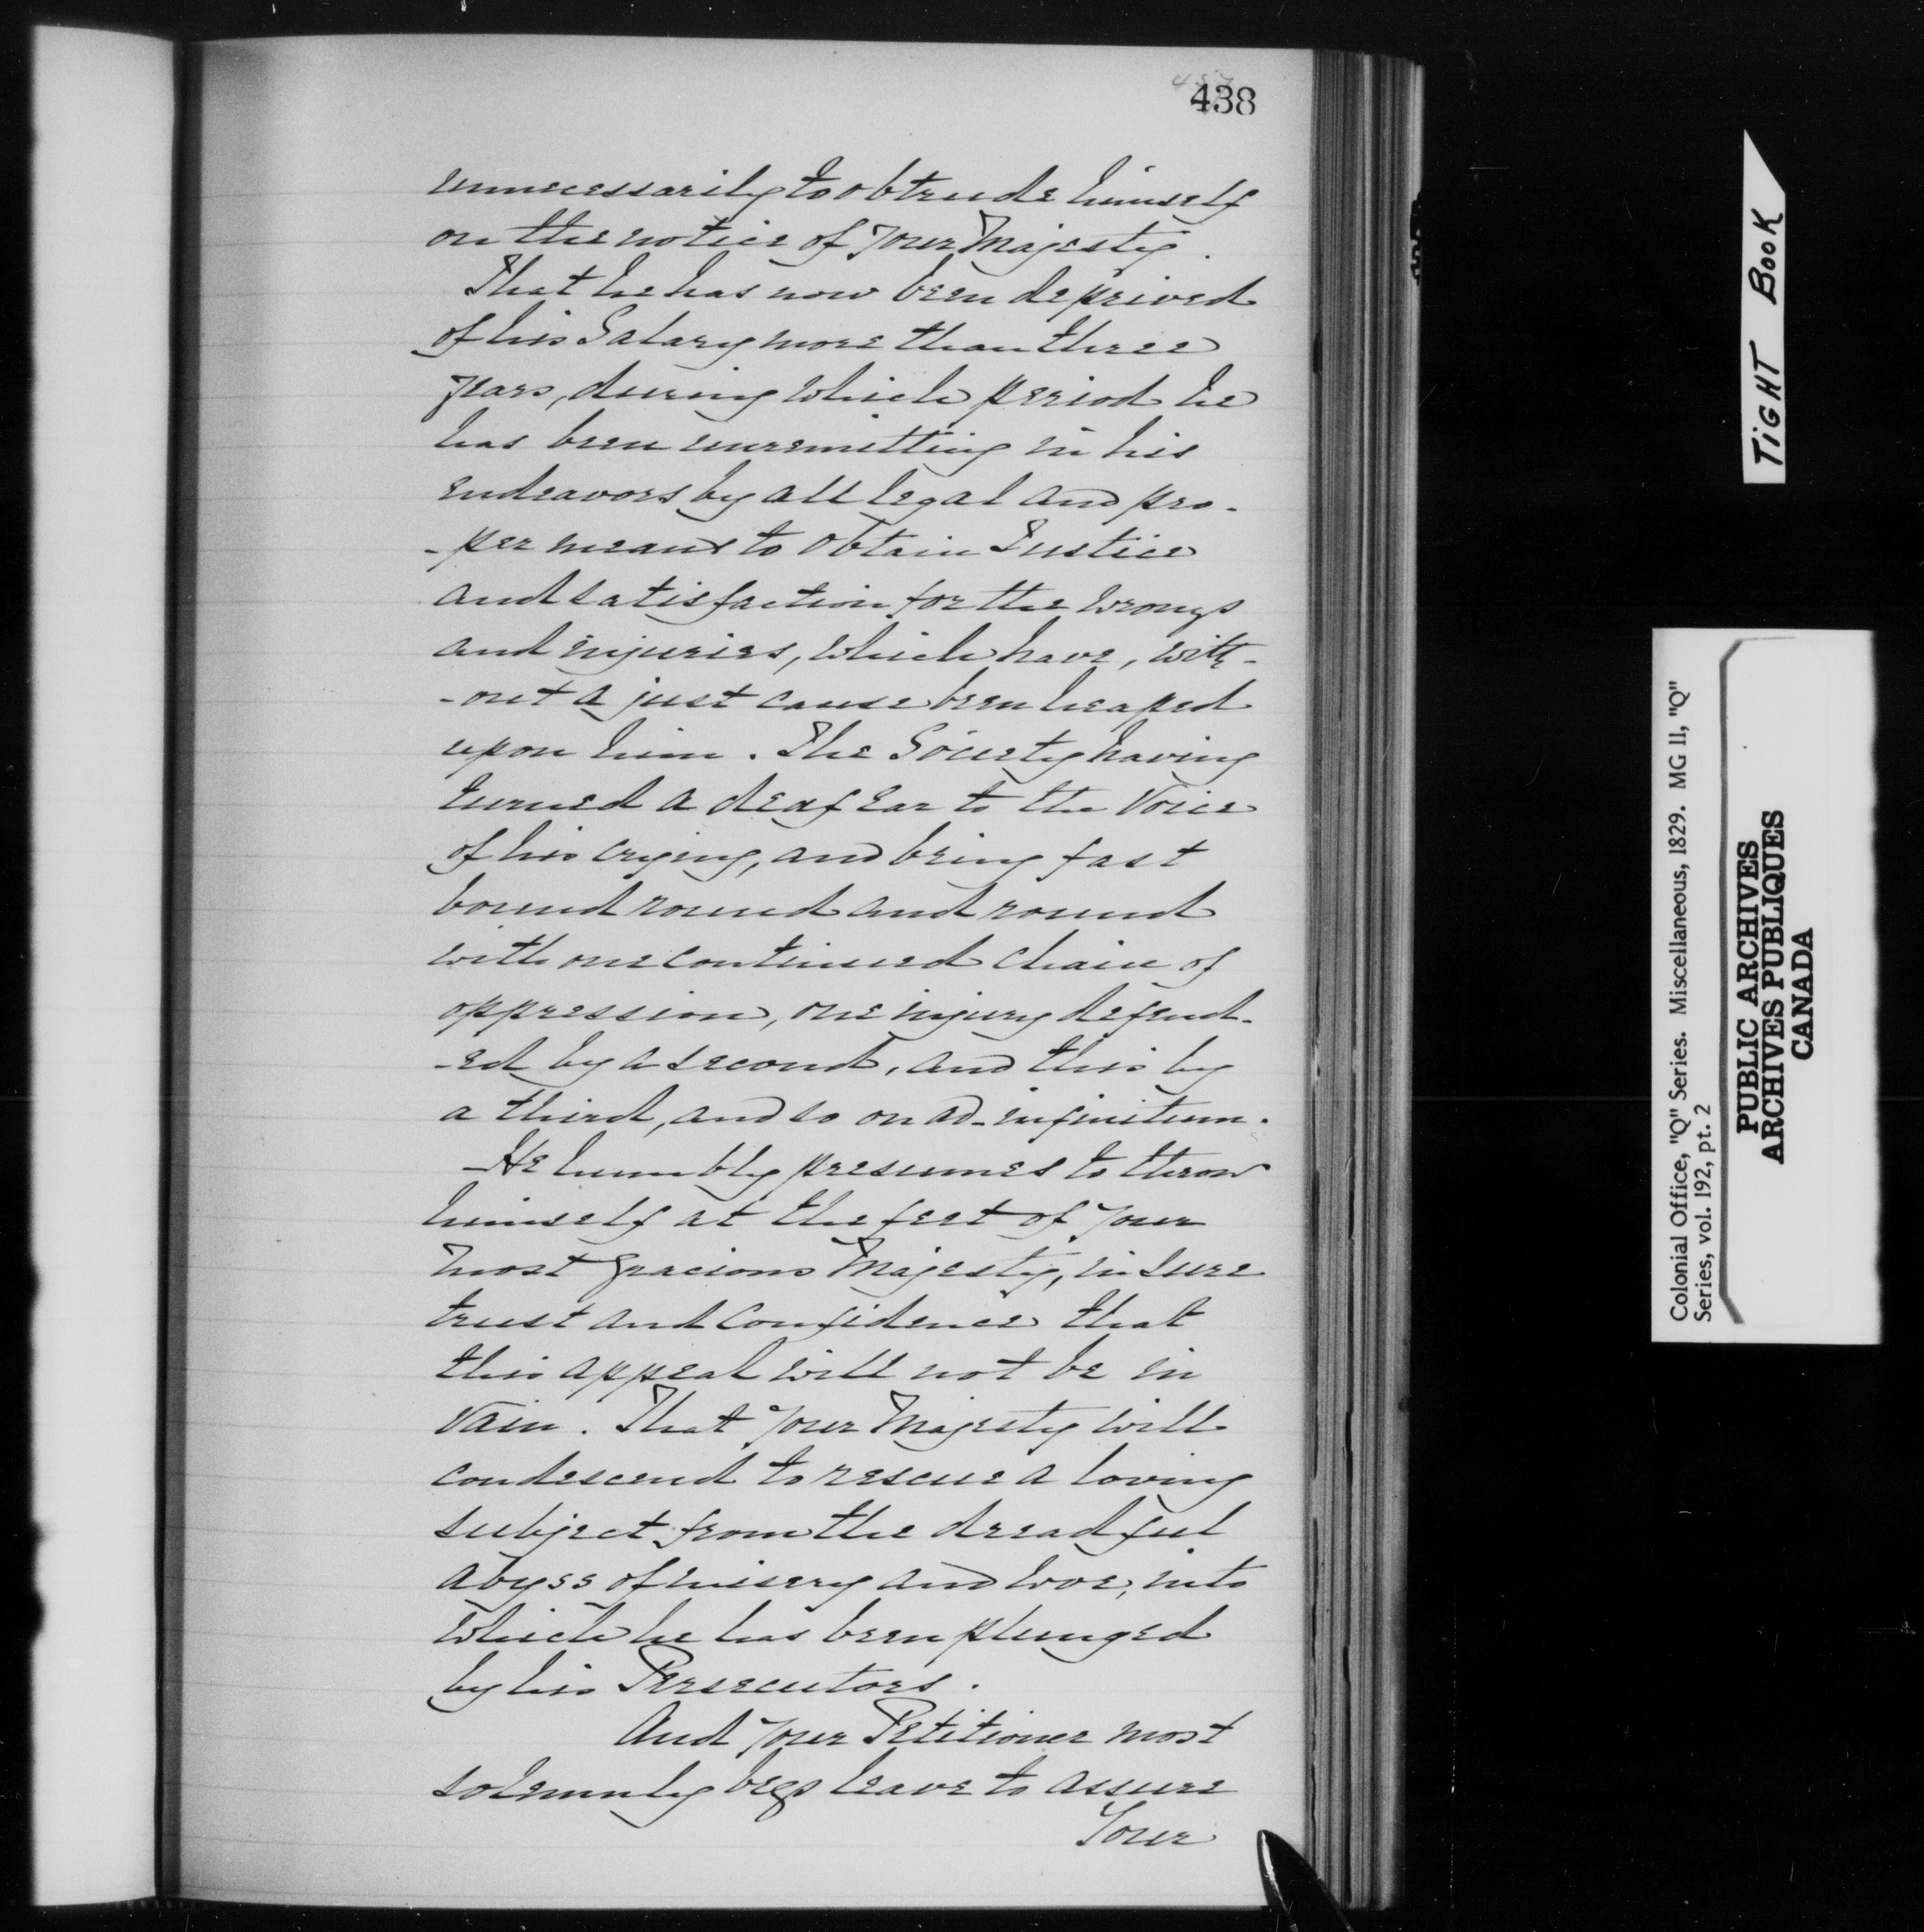 438
unnecessarily to obtrude himself
on the notice of Your Majesty.
That he has now been deprived
of his Salary more than three
years, during which period he
has been unremitting in his
endeavors by all legal and pro-
-per means to obtain Justice
and satisfaction for the wrongs
and injuries, which have, with-
-out a just cause been heaped
upon him. The Society having
turned a deaf Ear to the Voice
of his crying, and being fast
bound round and round
with one continued chain of
oppression, one injury defend-
-ed by a second, and this by
a third, and so on ad-infinitum.
He humbly presumes to throw
himself at the feet of your
most gracious Majesty, in sure
trust and confidence that
this appeal will not be in
vain. That your Majesty will
condescend to rescue a loving
subject from the dreadful
abyss of misery and woe, into
which he has been plunged
by his Persecutors.
And your Petitioner most
solemnly begs leave to assure
Your
TIGHT BOOK
Colonial Office, "Q" Series. Miscellaneous, 1829. MG 11, "Q"
Series, vol. 192, pt. 2
PUBLIC ARCHIVES
ARCHIVES PUBLIQUES
CANADA